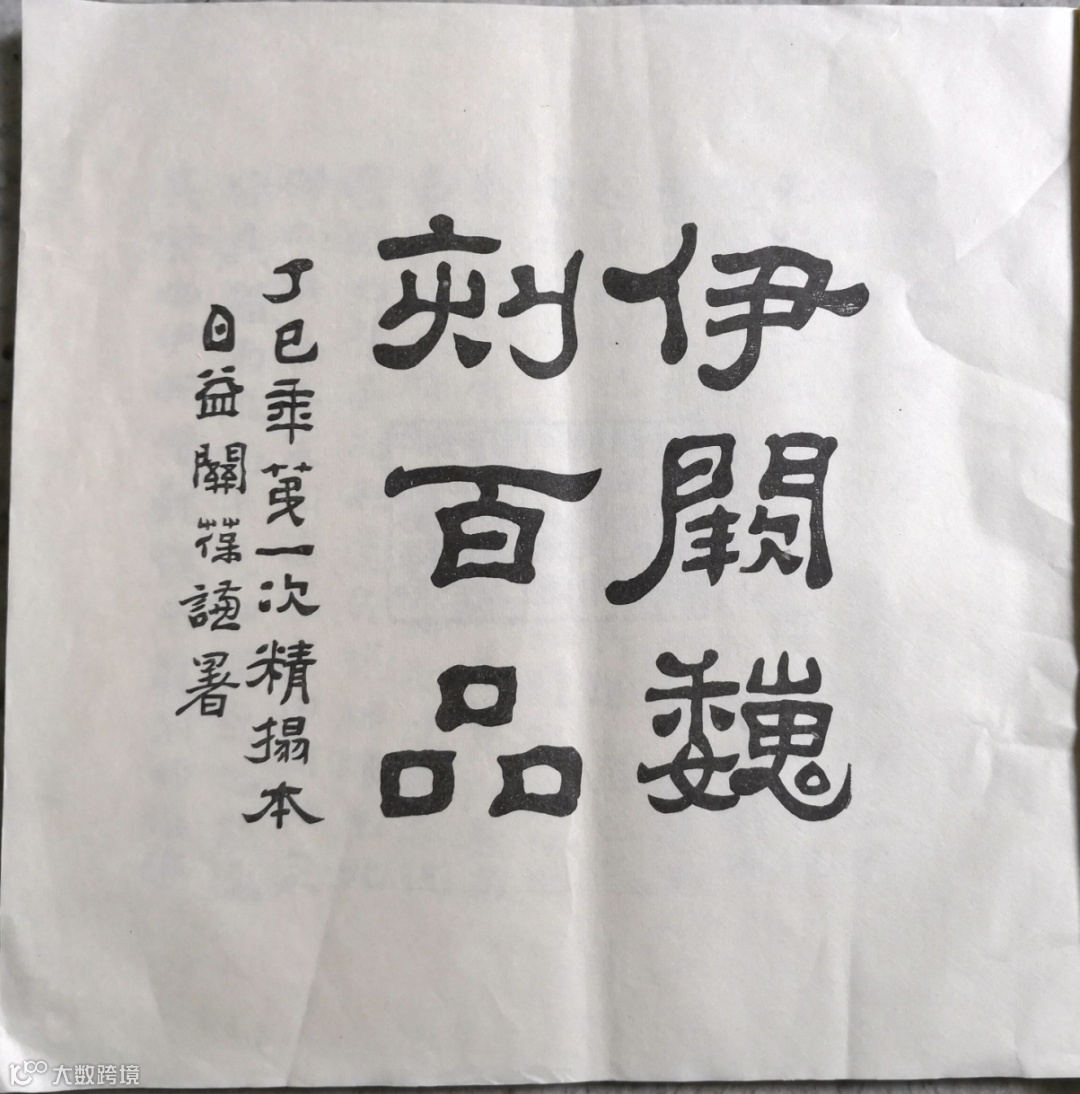 伊闕魏
刻百品
丁巳年苐一次精搨本
日益關葆謙署
大数跨境